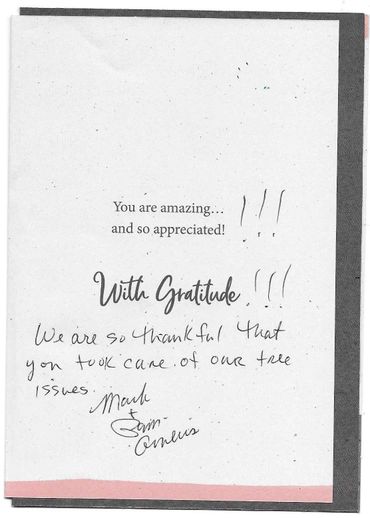 You are amazing... !!!
and so appreciated!
With Gratitude !!!
We are so thankful that
you took care of our tree
issues.
Mark
+
Pam